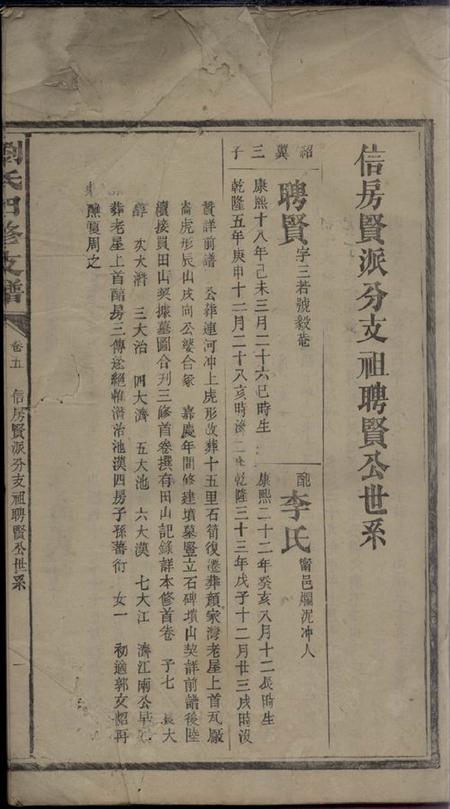 信房賢派分支祖聘賢公世系
紹翼三子
聘賢 字三若號毅菴
配李氏 甯邑爛泥冲人
康熙十八年己未三月二十六巳時生
康熙二十二年癸亥八月十二辰時生
乾隆五年庚申十二月二十八亥時歿
乾隆三十三年戊子十二月廿三戌時沒
贊詳前譜 公葬連河冲上虎形改葬十五里石筍復遷葬顏家灣老屋上首瓦廠
崙虎形辰山戌向公婆合冢 嘉慶年間修建墳墓豎立石碑墳山契詳前譜後陸
續接買田山契據墓圖合刋三修首卷撰有田山記錄詳本修首卷 子七 長大
次大濟 三大治 四大濟 五大池 六大漢 七大江 濟江兩公早
葬老屋上首 房三傳迄絕惟 治池漢四房子孫蕃衍 女一 初適郭女 再
醮 周之
劉氏四修支譜
卷五
信房賢派分支祖聘賢公世系
一